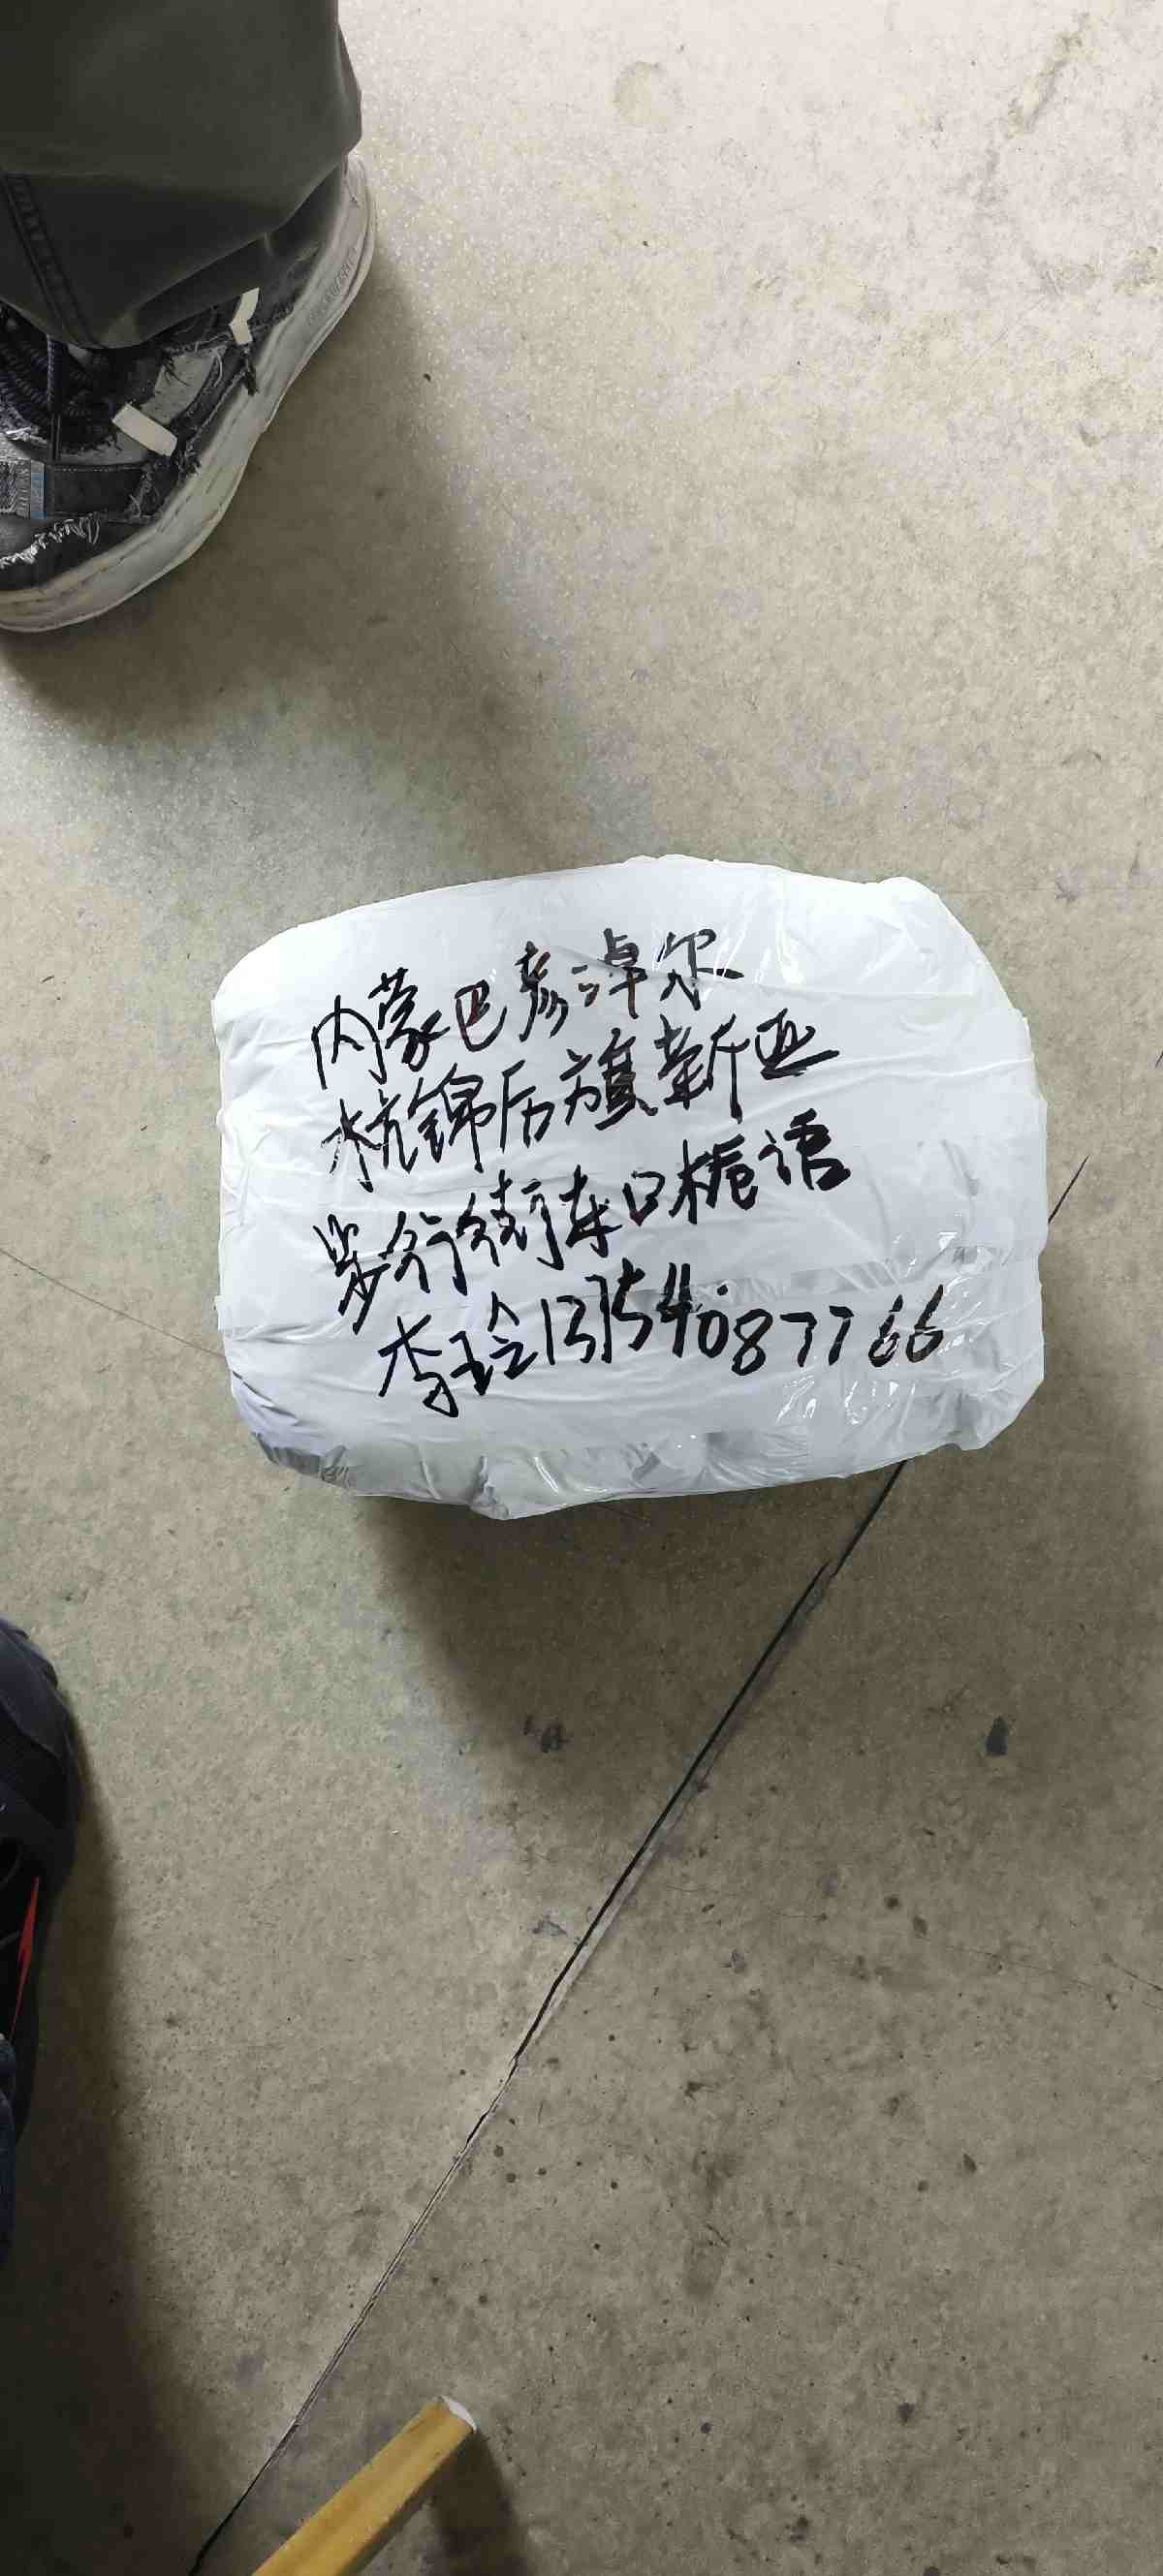 内蒙巴彦淖尔
杭锦后旗新亚
步行街东口栀语
李玲13754087766